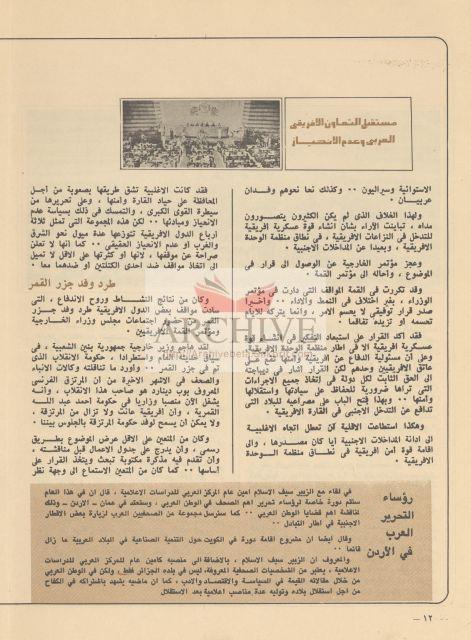 مستقبل التعاون الافريقي
العربي وعدم الانحياز
الاستوائية وسيراليون ٠٠ وكذلك نحا نحوهم وفدان
عربيان ٠
ولهذا الخلاف الذي لم يكن الكثيرون يتصورون
مداه ، تباينت الآراء بشأن انشاء قوة عسكرية افريقية
للتدخل في النزاعات الافريقية ، في نطاق منظمة الوحدة
الافريقية ، وبعيدا عن المداخلات الاجنبية ٠
وعجز مؤتمر الخارجية عن الوصول الى قرار في
الموضوع ، واحاله الى مؤتمر القمة ٠
وقد تكررت في القمة المواقف التي دارت في مؤتمر
الوزراء ، بغير اختلاف في النمط والاداء ٠٠ وأخيرا
صدر قرار توفيقي لا يحسم الامر ، وانما يتركه للايام
تحسمه أو تزيده تفاقما ٠
فقد أكد القرار على استبعاد التفكير في انشاء قوة
عسكرية افريقية الا في اطار منظمة الوحدة الافريقية
وعلى أن مسئولية الدفاع عن افريقيا وأمنها تقع على
عاتق الافريقيين وحدهم لكن القرار أشار في ديباجته
الى الحق الثابت لكل دولة في اتخاذ جميع الاجراءات
التي تراها ضرورية للحفاظ على سيادتها واستقلالها
وأمنها ٠٠ وبهذا فتح الباب على مصراعيه للبلاد التي
تدافع عن التدخل الاجنبي في القارة الافريقية ٠
وهكذا استطاعت الاقلية أن تعطل اتجاه الاغلبية
الى ادانة المداخلات الاجنبية أيا كان مصدرها ، والى
اقامة قوة أمن افريقية في نطاق منظمة الوحدة
الافريقية ٠
فقد كانت الاغلبية تشق طريقها بصعوبة من اجل
المحافظة على حياد القارة وأمنها ، وعلى تحريرها من
سيطرة القوى الكبرى ، والتمسك في ذلك بسياسة عدم
الانحياز ومبادئها ٠٠ لكن هذه المجموعة التي تمثل ثلاثة
ارباع الدول الافريقية تتوزعها عدة ميول نحو الشرق
والغرب أو عدم الانحياز الحقيقي ٠٠ كما انها لا تعلن
صراحة عن موقفها ، لانها أو كثرتها على الاقل لا تميل
الى اتخاذ مواقف ضد احدى الكتلتين أو ضدهما معا ٠
طرد وفد جزر القمر
وكان من نتائج النشاط وروح الاندفاع ، التي
سادت مواقف بعض الدول الافريقية طرد وفد جزر
القمر من حضور اجتماعات مجلس وزراء الخارجية
القمة الافريقيين ٠
لقد هاجم وزير خارجية جمهورية بنين الشعبية ، في
، حكومة الانقلاب الذي
تم في جزر القمر ٠٠ وأورد ما تناقلته وكالات الانباء
والصحف في الاشهر الاخيرة من أن المرتزق الفرنسي
المعروف بوب دينارد هو صاحب هذا الانقلاب ، وانه
يشغل الآن منصبا وزاريا في حكومة أحمد عبد الله
القمرية ، وأن افريقية عانت ولا تزال من المرتزقة
ولا يمكن أن يسمح لوفد حكومة المرتزقة بالجلوس بيننا ٠
وكان من المتعين على الاقل عرض الموضوع بطريق
رسمي ، وأن يدرج على جدول الاعمال قبل مناقشته ،
وأن تقدم فيه مذكرة مكتوبة تبحث ويتخذ القرار على
أساسها ٠٠ كما كان من المتعين الاستماع الى وجهة نظر
رؤساء
التحرير
العرب
في الأردن
في لقاء مع الزبير سيف الاسلام أمين عام المركز العربي للدراسات الاعلامية ، قال ان في هذا العام
ستتم دورة خاصة لرؤساء تحرير أهم الصحف في الوطن العربي ، وستعقد في عمان – الاردن – وذلك
لمناقشة أهم قضايا الوطن العربي ٠٠ كما سنرسل مجموعة من الصحفيين العرب لزيارة بعض الاقطار
الاجنبية في اطار التبادل ٠٠
وقال أيضا ان مشروع اقامة دورة في الكويت حول التنمية الصناعية في البلاد العربية ما زال
قائما ٠٠
والمعروف ان الزبير سيف الاسلام ، بالاضافة الى منصبه كأمين عام للمركز العربي للدراسات
الاعلامية ، يعتبر من الشخصيات الصحفية المعروفة، ليس في بلده الجزائر فقط ، ولكن في الوطن العربي
من خلال مقالاته القيمة في السياسة والاقتصاد والادب ، كما أن ماضيه يشهد باشتراكه في الكفاح
من أجل استقلال بلاده وتوليه عدة مناصب اعلامية بعد الاستقلال
١٢ –
ARCHIVE